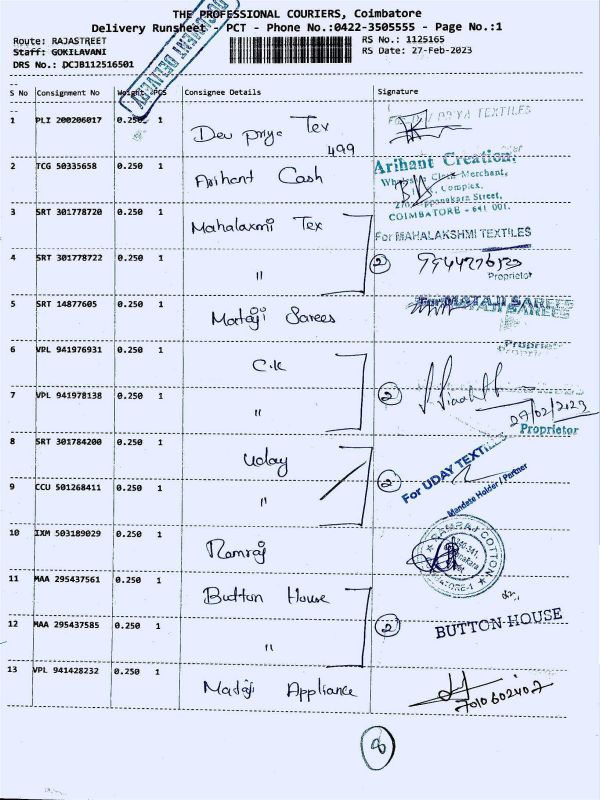 THE PROFESSIONAL COURIERS, Coimbatore
Delivery Runsheet - PCT - Phone No.:0422-3505555 - Page No.:1
Route: RAJASTREET
RS No.: 1125165
Staff: GOKILAVANI
RS Date: 27-Feb-2023
DRS No.: DCJB112516501
DOCUMENT DELIVERY
S No Consignment No Weight PCS Consignee Details Signature
1 PLI 200206017 0.250 1 Dev priya Tex
499
PRIYA TEXTILES
2 TCG 50335658 0.250 1 Arihant Cash
Arihant Creation,
Merchant,
Complex,
Street,
COIMBATORE - 641 001.
3 SRT 301778720 0.250 1 Mahalaxmi Tex
For MAHALAKSHMI TEXTILES
4 SRT 301778722 0.250 1 "
2
Proprietor
5 SRT 14877605 0.250 1 Mataji Sarees
For MATAJI SAREES
Proprietor
6 VPL 941976931 0.250 1 C.K
7 VPL 941978138 0.250 1 "
2
27/02/2023
Proprietor
8 SRT 301784200 0.250 1 Uday
For UDAY TEXTILES
9 CCU 501268411 0.250 1 "
2
Mandate Holder / Partner
10 IXM 503189029 0.250 1 Ramraj
RAMRAJ COTTON
11 MAA 295437561 0.250 1 Button House
12 MAA 295437585 0.250 1 "
2
BUTTON-HOUSE
13 VPL 941428232 0.250 1 Mataji Appliance
7010602402
8